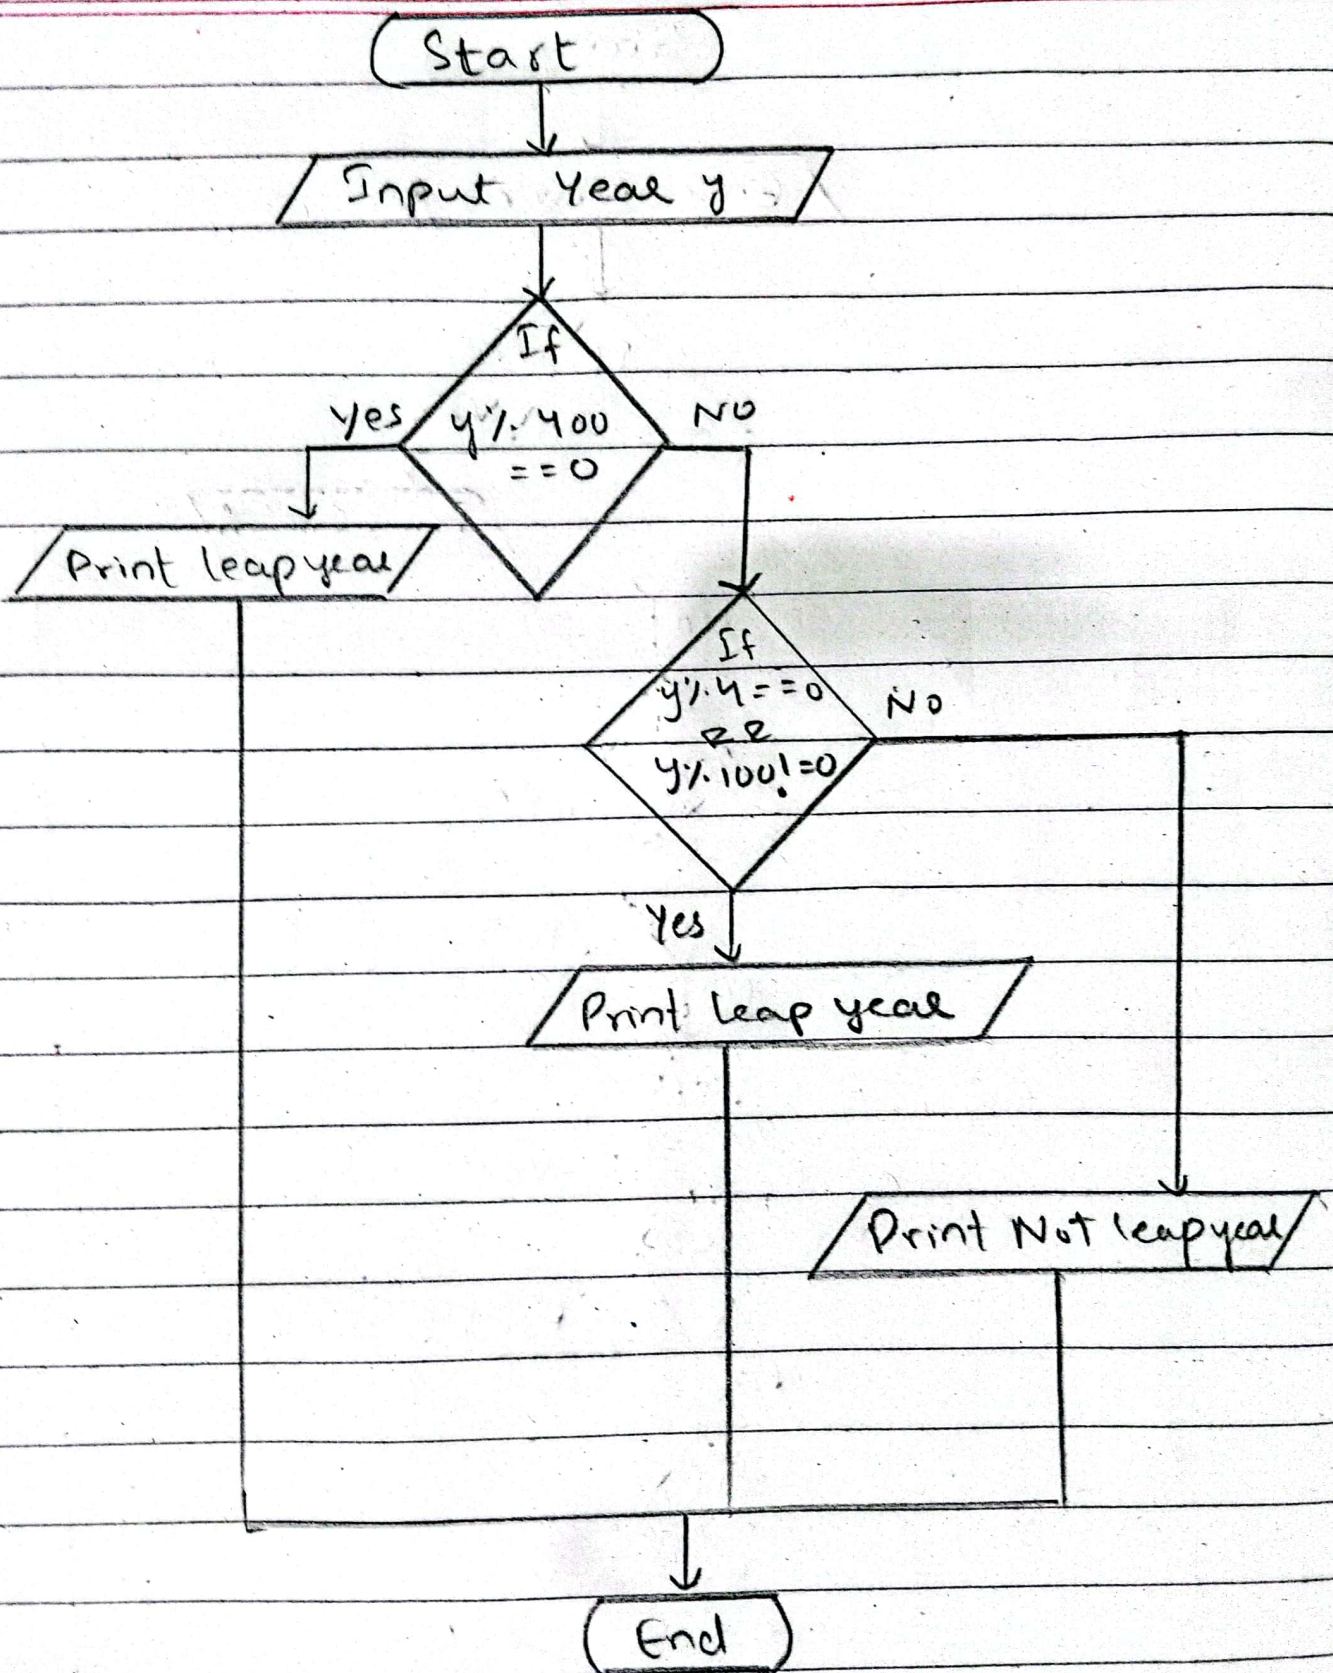 Start
Input Year y
If
Yes
y % 400
NO
== 0
Print leap year
If
y % 4 == 0
NO
&&
y % 100 != 0
Yes
Print leap year
Print Not leap year
End